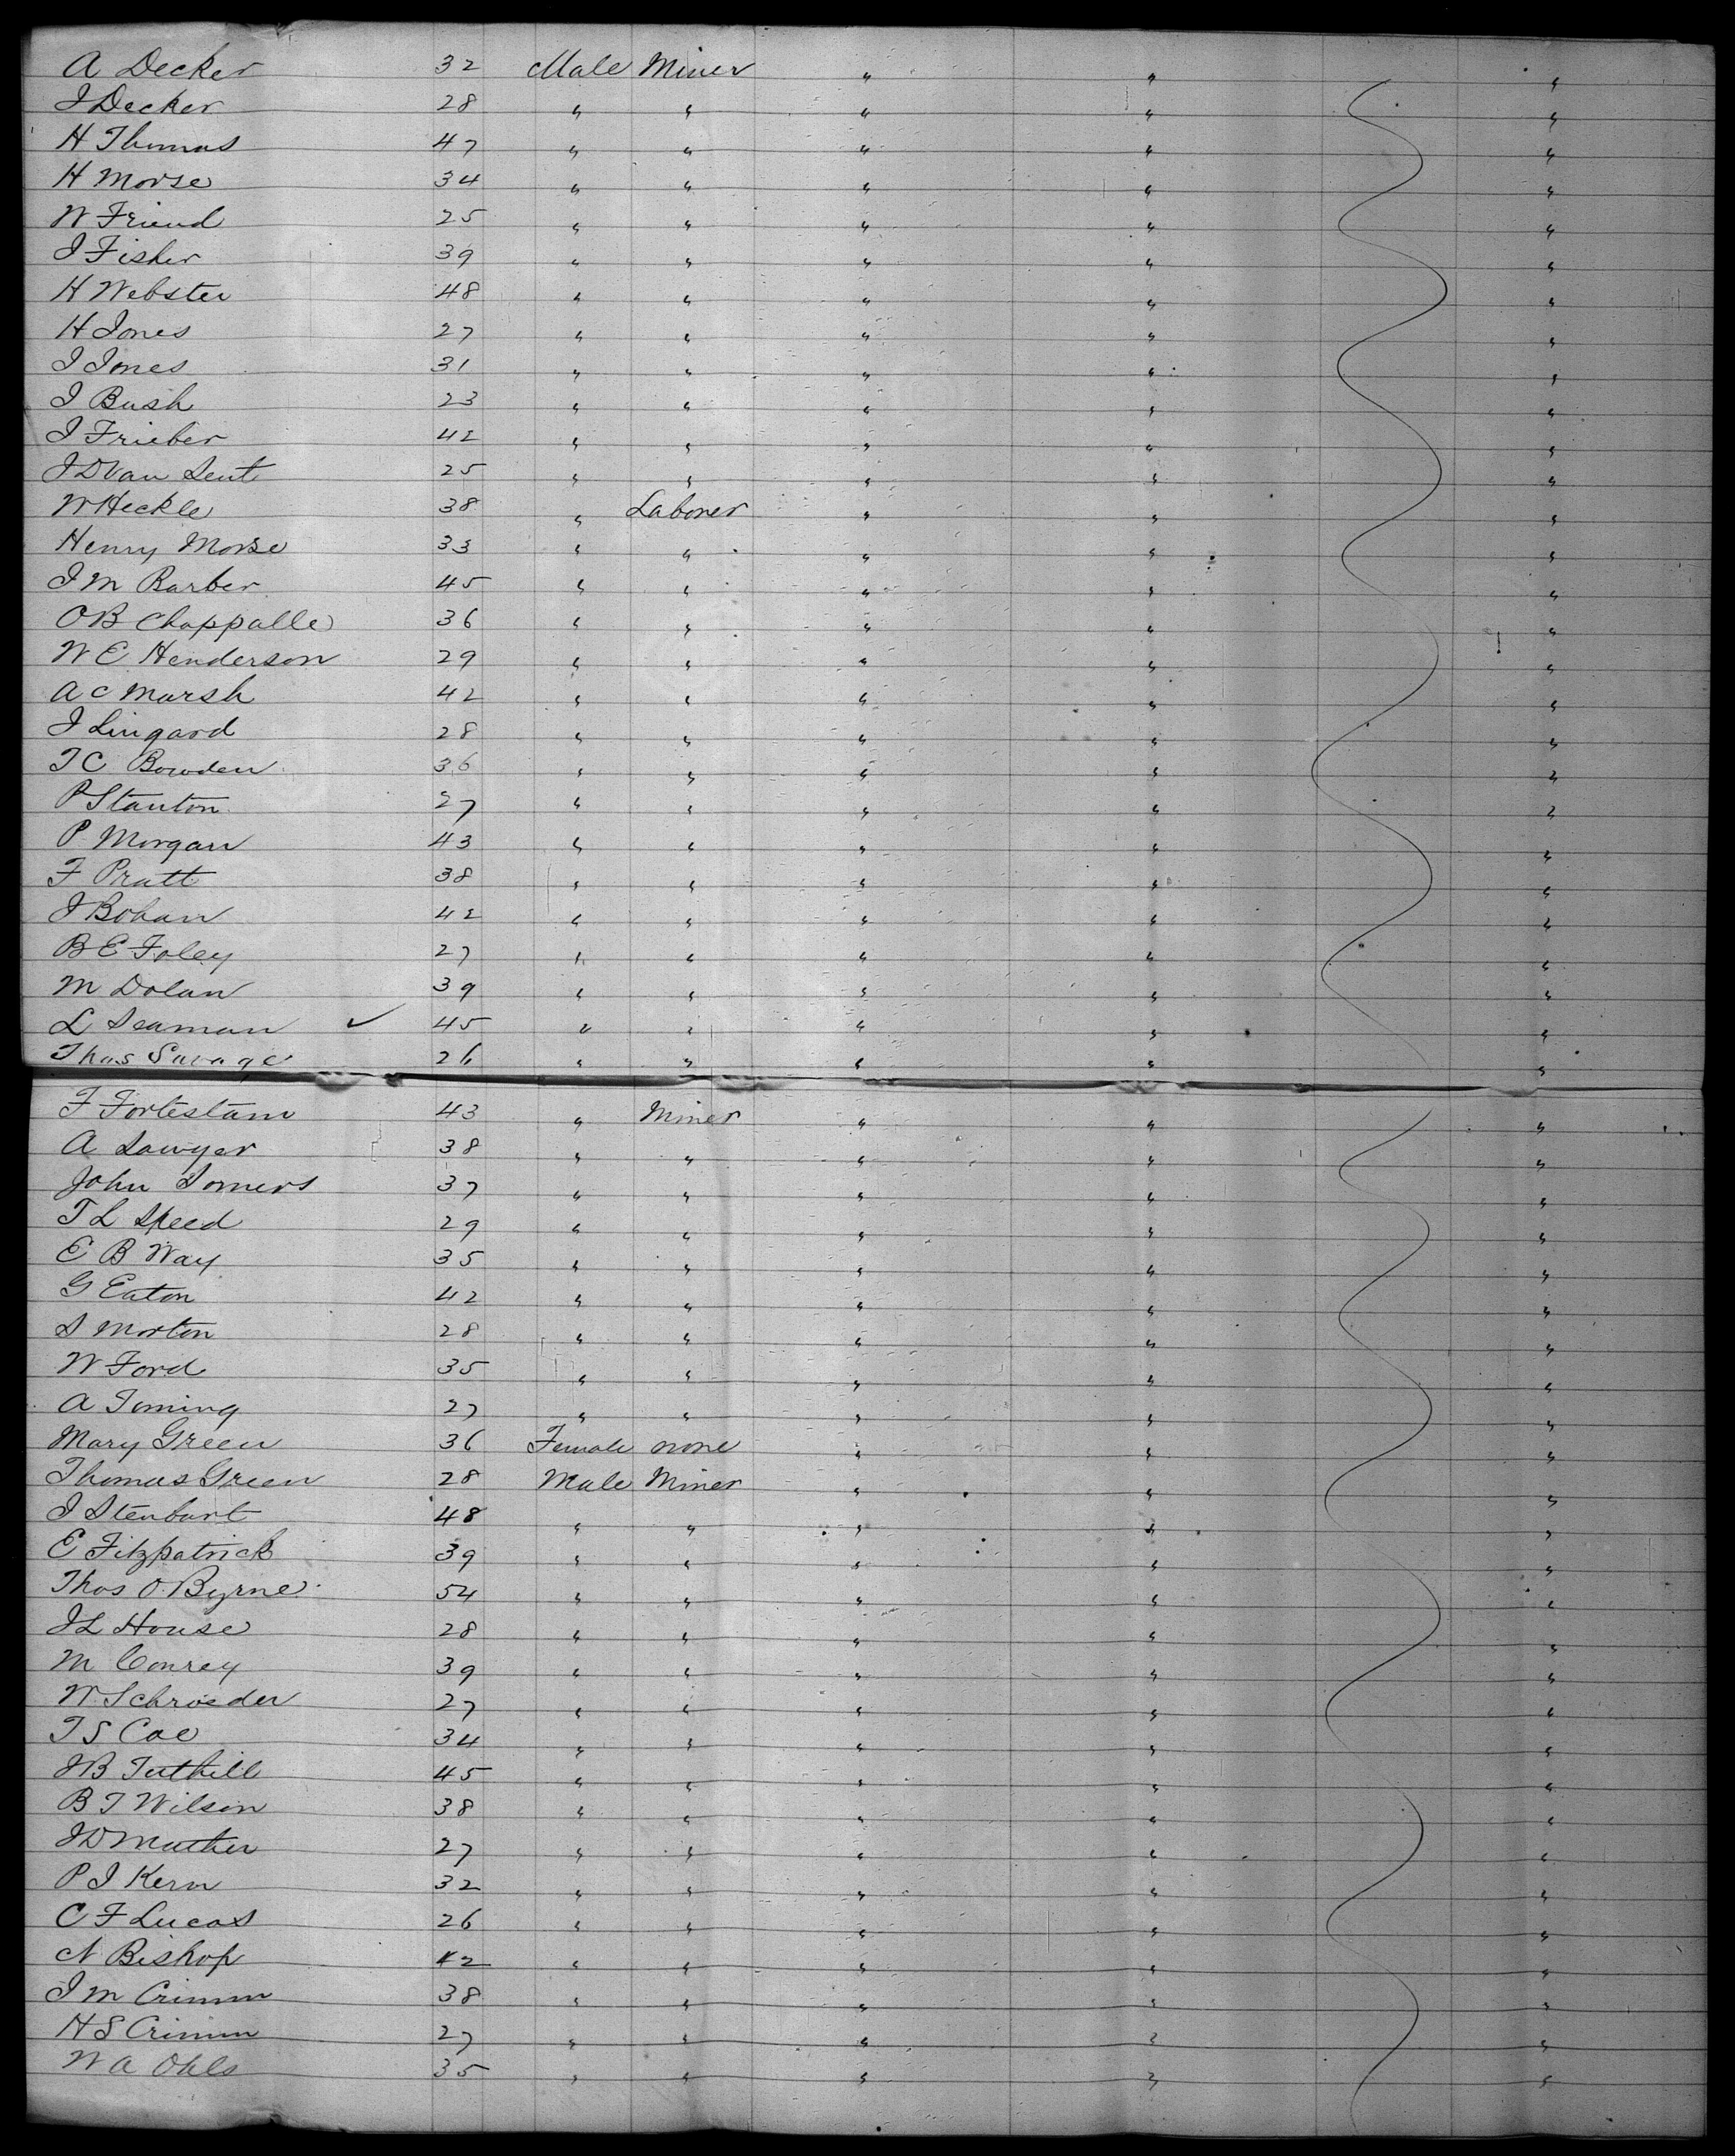 A Decker 32 Male Miner " " "
J Decker 28 " " " " "
H Thomas 47 " " " " "
H Morse 34 " " " " "
W Friend 25 " " " " "
J Fisher 39 " " " " "
H Webster 48 " " " " "
H Jones 27 " " " " "
J Jones 31 " " " " "
J Bush 23 " " " " "
J Frieber 42 " " " " "
J D Van Sent 25 " " " " "
W Heckle 38 " Laborer " " "
Henry Morse 33 " " " " "
J M Barber 45 " " " " "
O B Chappalle 36 " " " " "
W E Henderson 29 " " " " "
A C Marsh 42 " " " " "
J Lingard 28 " " " " "
T C Bowden 36 " " " " "
P Stanton 27 " " " " "
P Morgan 43 " " " " "
F Pratt 38 " " " " "
J Bohan 42 " " " " "
B E Foley 27 " " " " "
M Dolan 39 " " " " "
L Seaman ✓ 45 " " " " "
Thos Savage 26 " " " " "
F Fortestam 43 " Miner " " "
A Sawyer 38 " " " " "
John Somers 37 " " " " "
T L Speed 29 " " " " "
E B Way 35 " " " " "
G Eaton 42 " " " " "
S Morton 28 " " " " "
W Ford 35 " " " " "
A Toming 27 " " " " "
Mary Green 36 Female none " " "
Thomas Green 28 Male Miner " " "
J Stenburt 48 " " " " "
E Fitzpatrick 39 " " " " "
Thos O Byrne 54 " " " " "
J L House 28 " " " " "
M Conrey 39 " " " " "
W Schroeder 27 " " " " "
T S Coe 34 " " " " "
J B Tuthill 45 " " " " "
B T Wilson 38 " " " " "
J D Mather 27 " " " " "
P J Kern 32 " " " " "
C F Lucas 26 " " " " "
N Bishop 42 " " " " "
J M Crimm 38 " " " " "
H S Crimm 27 " " " " "
W A Ohls 35 " " " " "